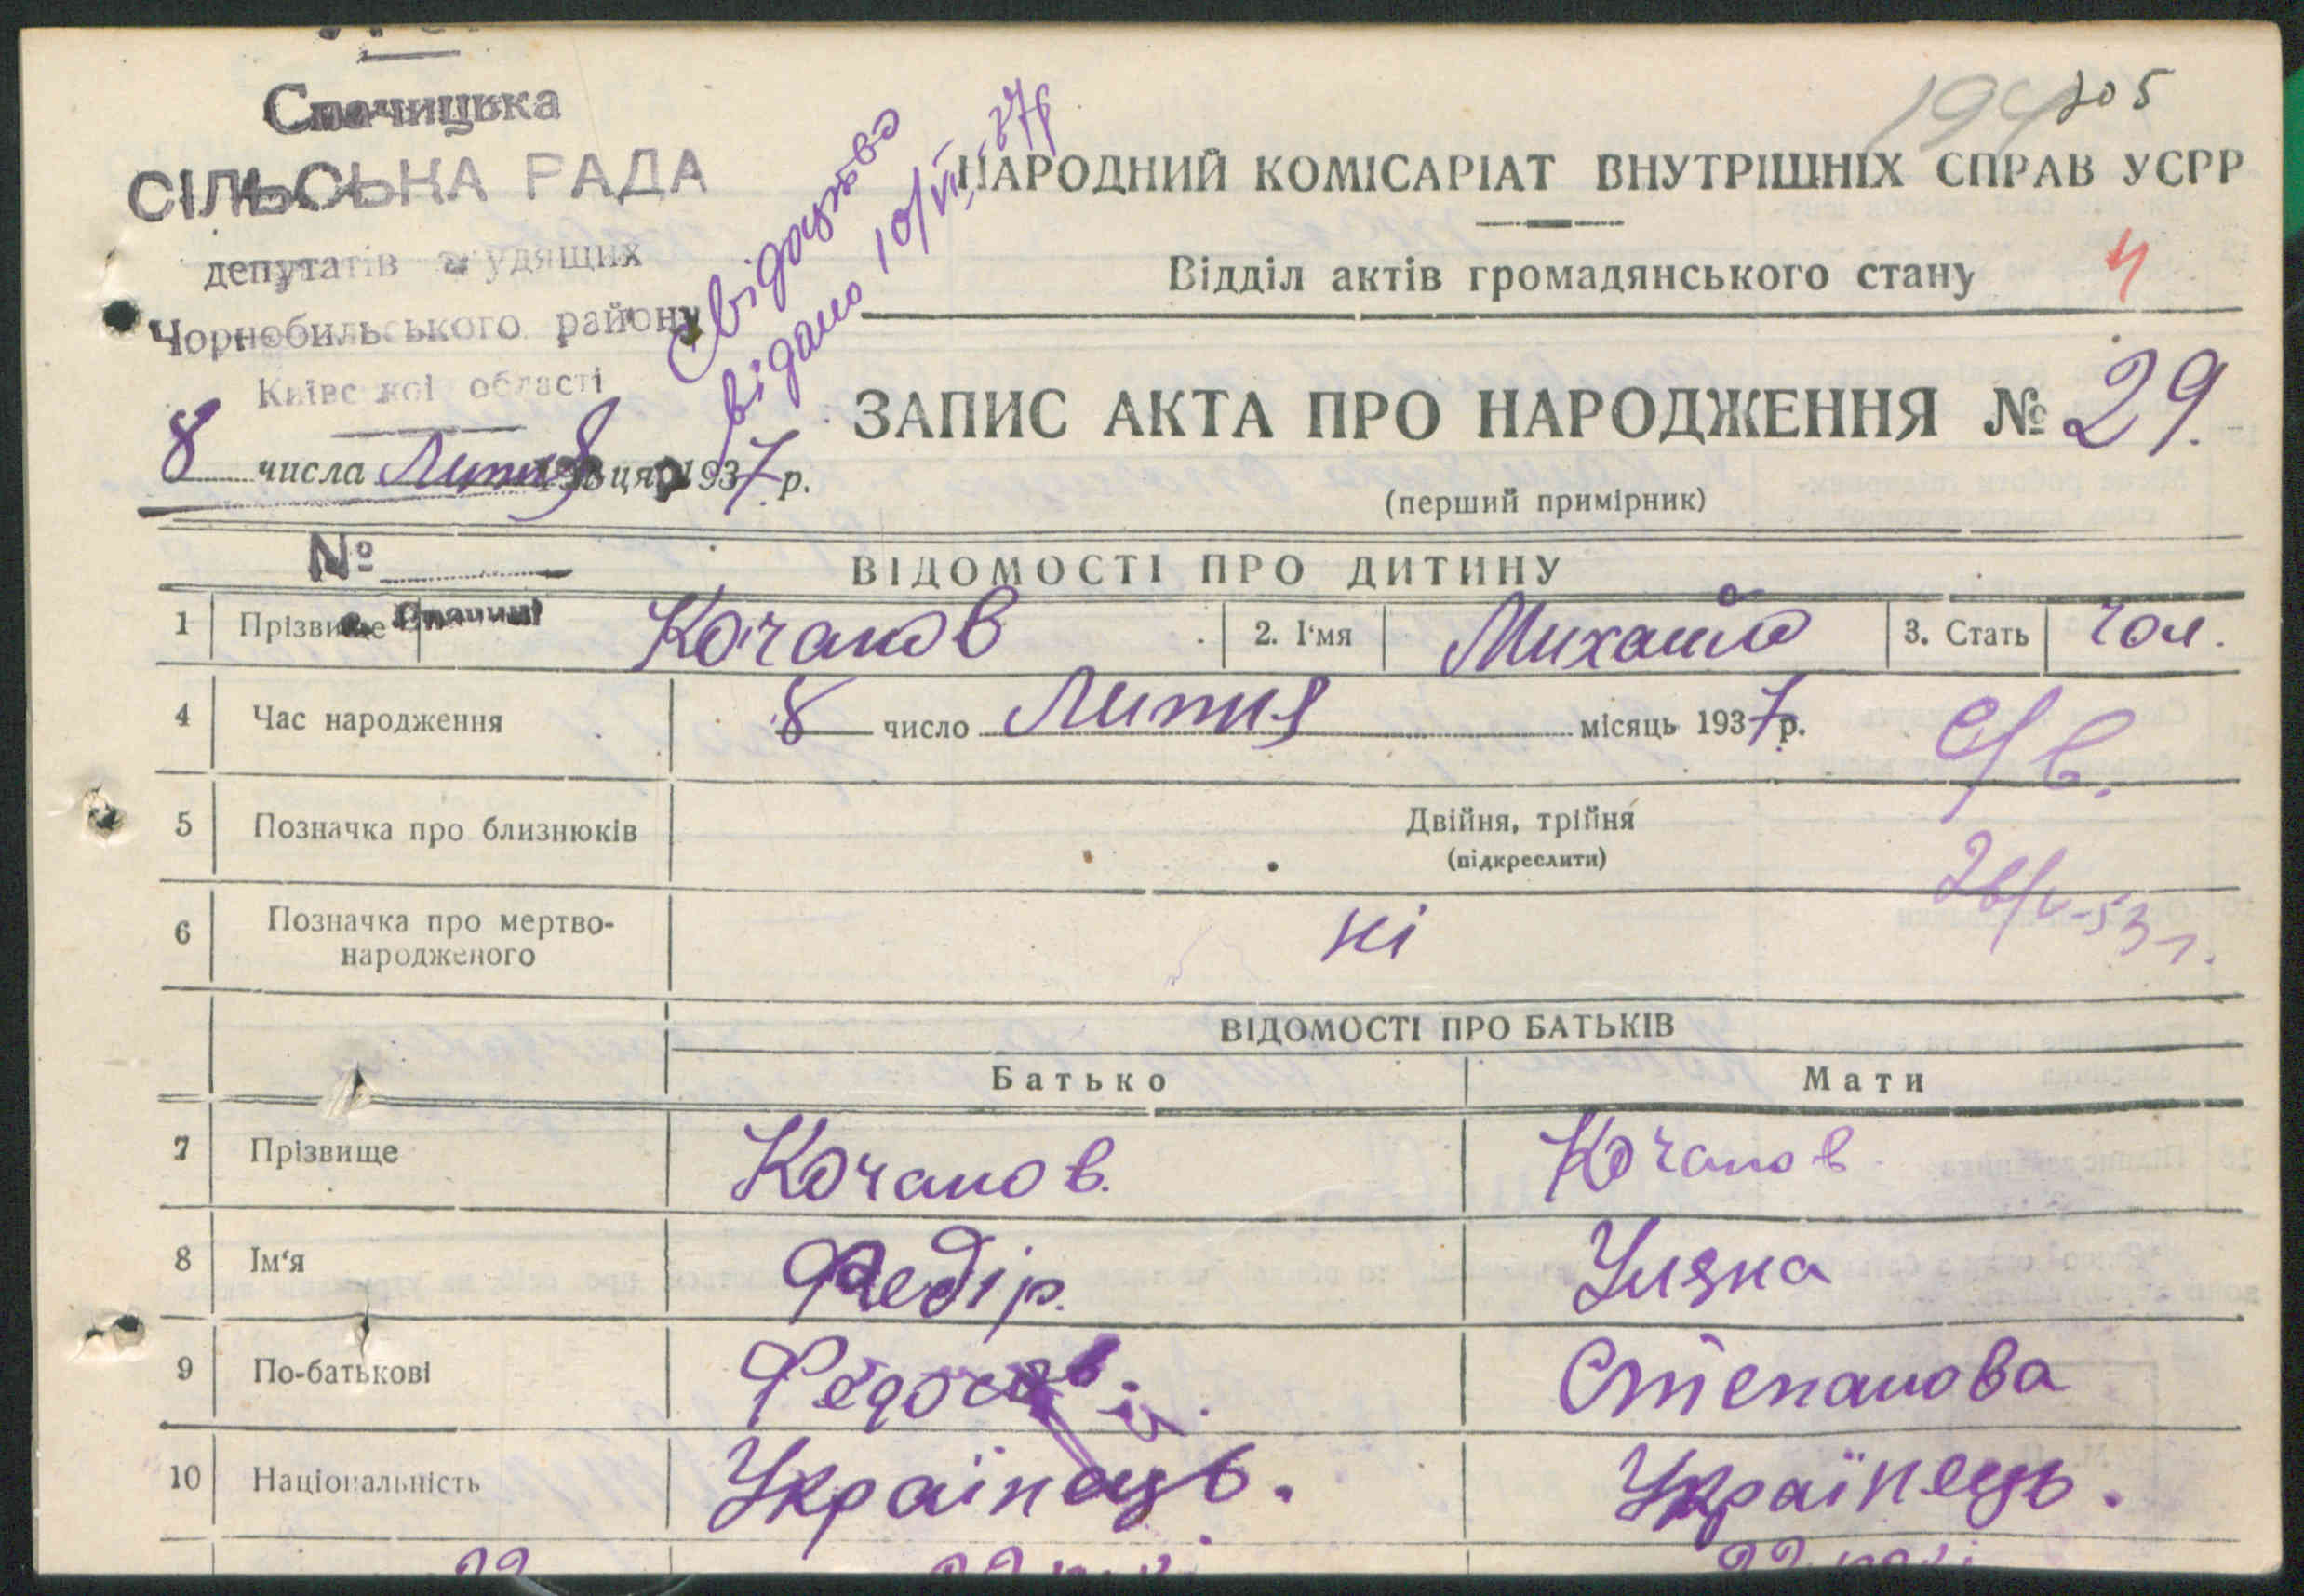 Спачицька
СІЛЬСЬКА РАДА
депутатів трудящих
Чорнобильського району
Київської області
8 числа Липня 1937 р.
№
с. Спачиці
Свідоцтво
відано 10/VII-37р
194 205
НАРОДНИЙ КОМІСАРІАТ ВНУТРІШНІХ СПРАВ УСРР
Відділ актів громадянського стану
4
ЗАПИС АКТА ПРО НАРОДЖЕННЯ № 29.
(перший примірник)
ВІДОМОСТІ ПРО ДИТИНУ
1 Прізвище Кочанов 2. І'мя Михайло 3. Стать чол.
4 Час народження 8 число Липня місяць 1937 р.
5 Позначка про близнюків Двійня, трійня
(підкреслити)
6 Позначка про мертво-
народженого ні
ВІДОМОСТІ ПРО БАТЬКІВ
Батько Мати
7 Прізвище Кочанов. Кочанов
8 Ім'я Федір. Уляна
9 По-батькові Степанова
10 Національність Українець. Українець.